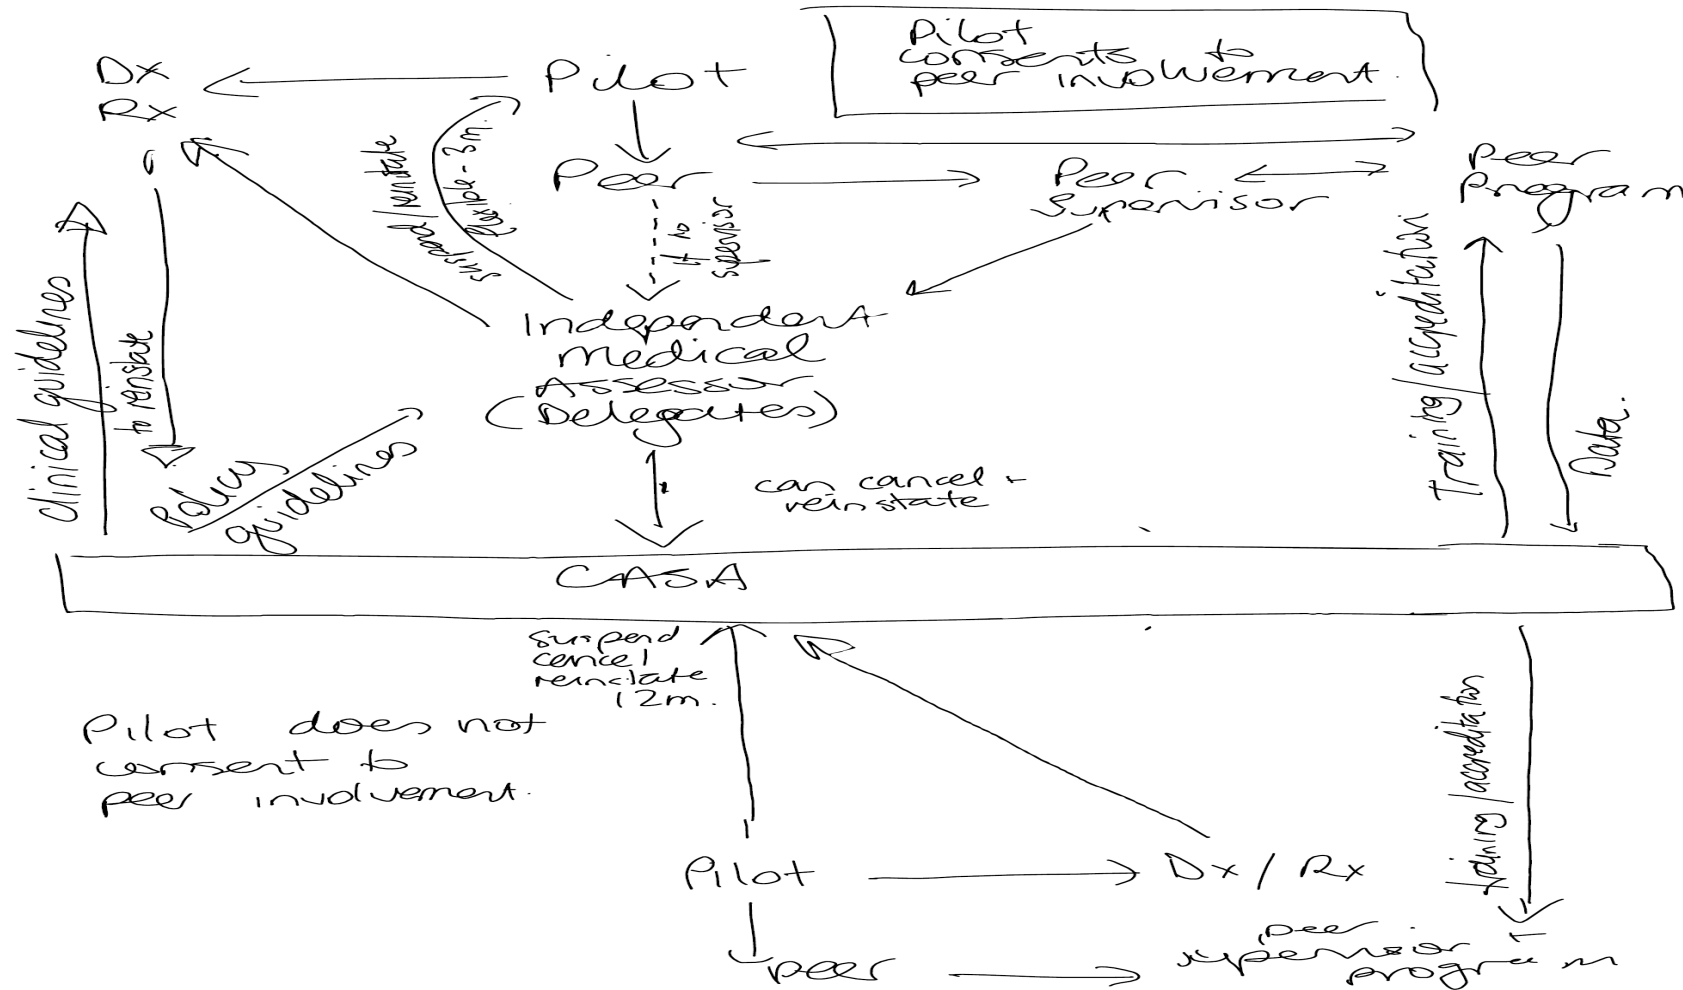 Pilot
consents to
peer involvement.
Dx
Rx
Pilot
Peer
Peer
Supervisor
Peer
Program
suspend/reinstate
flexible - 3m.
If no
supervisor
Independent
Medical
Assessor
(Delegates)
clinical guidelines
to reinstate
Policy
guidelines
can cancel +
reinstate
Training/accreditation
Data.
CASA
suspend
cancel
reinstate
12m.
Pilot does not
consent to
peer involvement.
training/accreditation
Pilot
Dx / Rx
peer
peer
supervisor
program